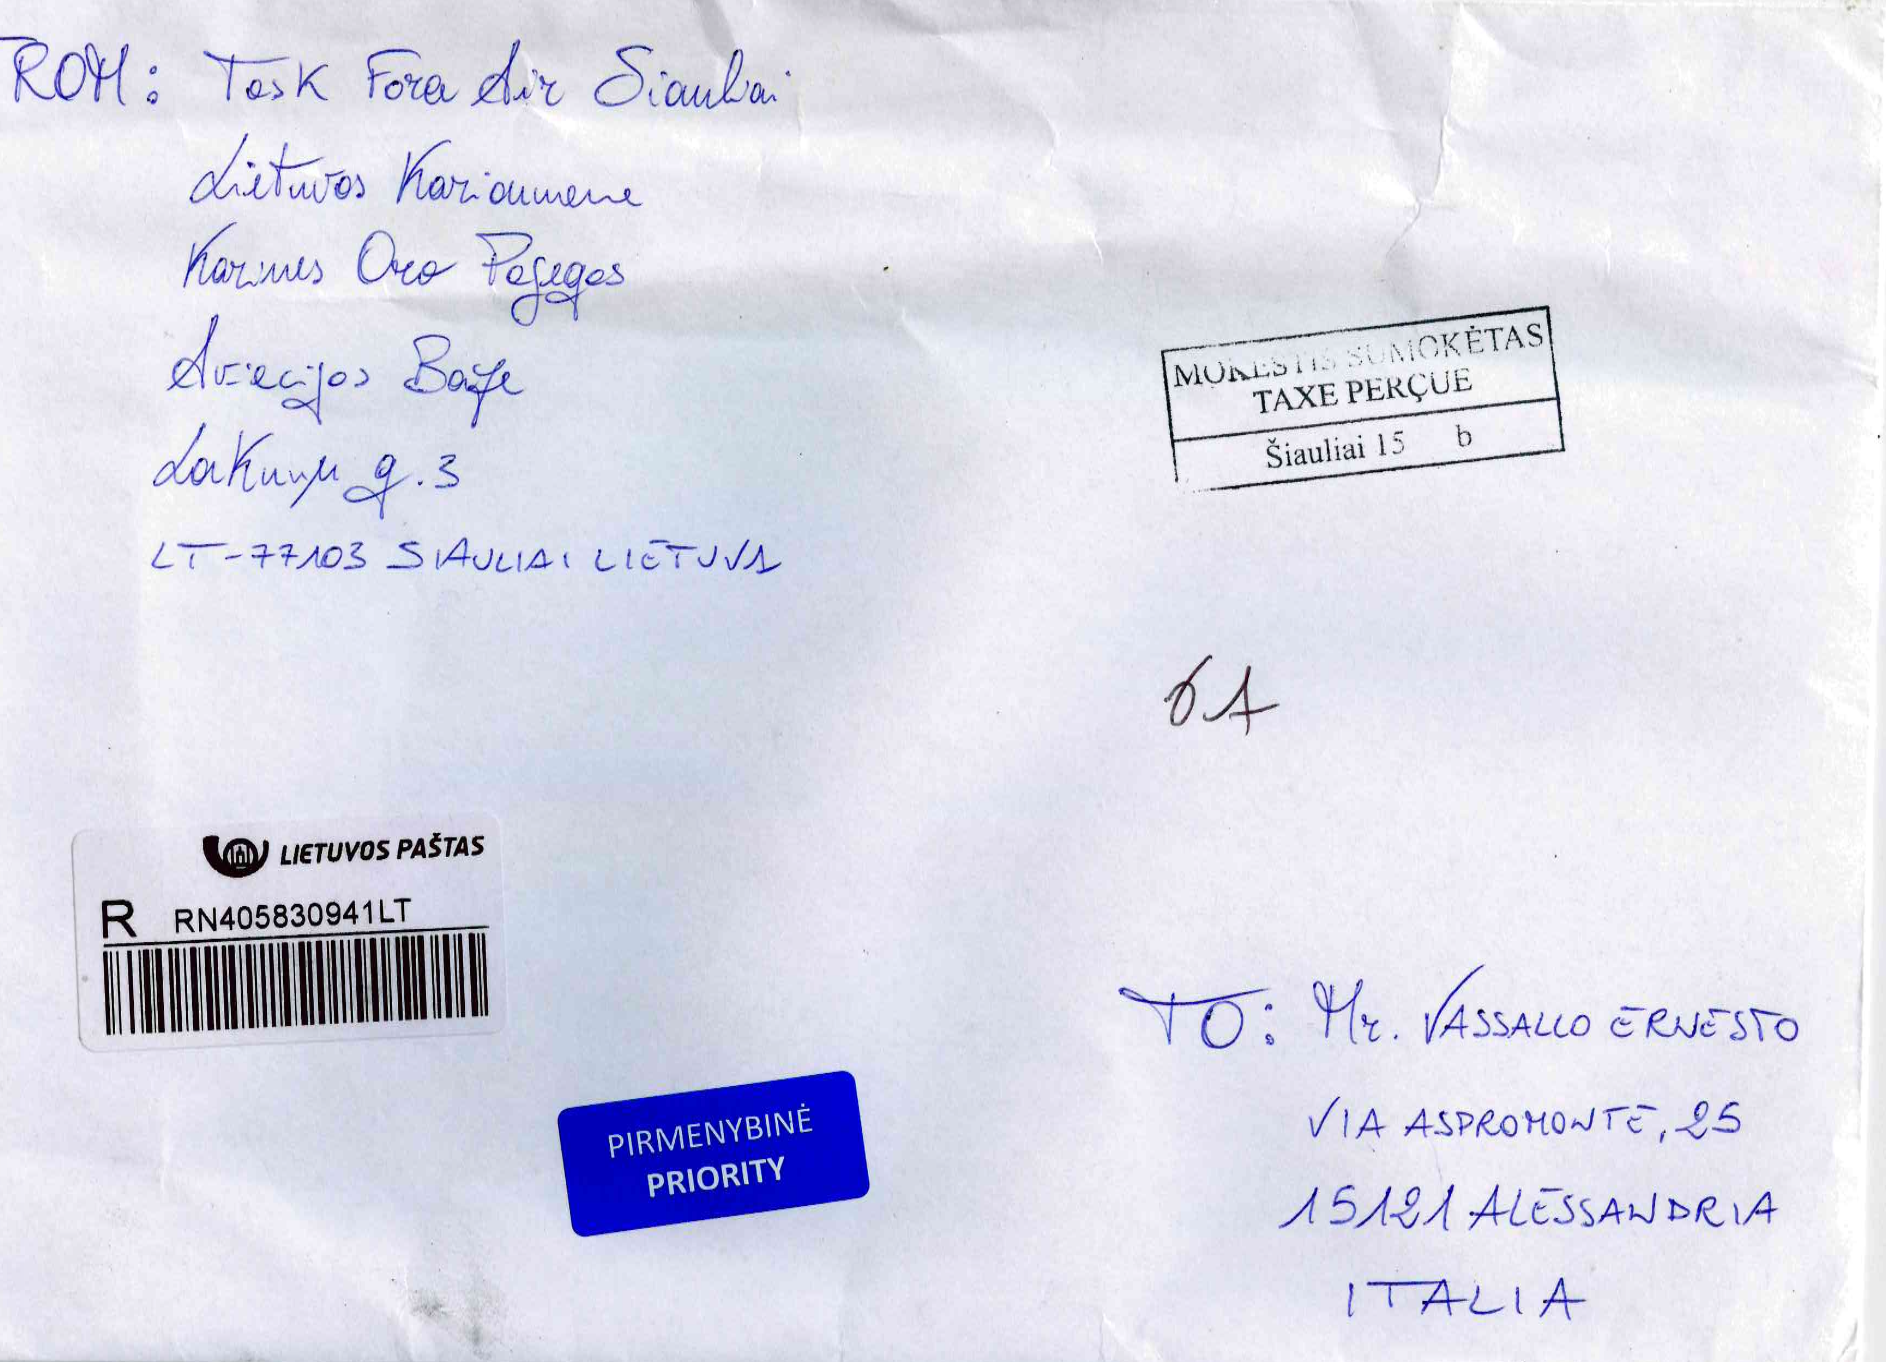 FROM: Task Force Air Siauliai
Lietuvos Kariaumene
Karines Oro Pajegos
Aviacijos Baze
Lakunu g. 3
LT-77103 SIAULIAI LIETUVA
MOKESTIS SUMOKĖTAS
TAXE PERÇUE
Šiauliai 15 b
6A
LIETUVOS PAŠTAS
R RN405830941LT
PIRMENYBINĖ
PRIORITY
TO: Mr. VASSALLO ERNESTO
VIA ASPROMONTE, 25
15121 ALESSANDRIA
ITALIA